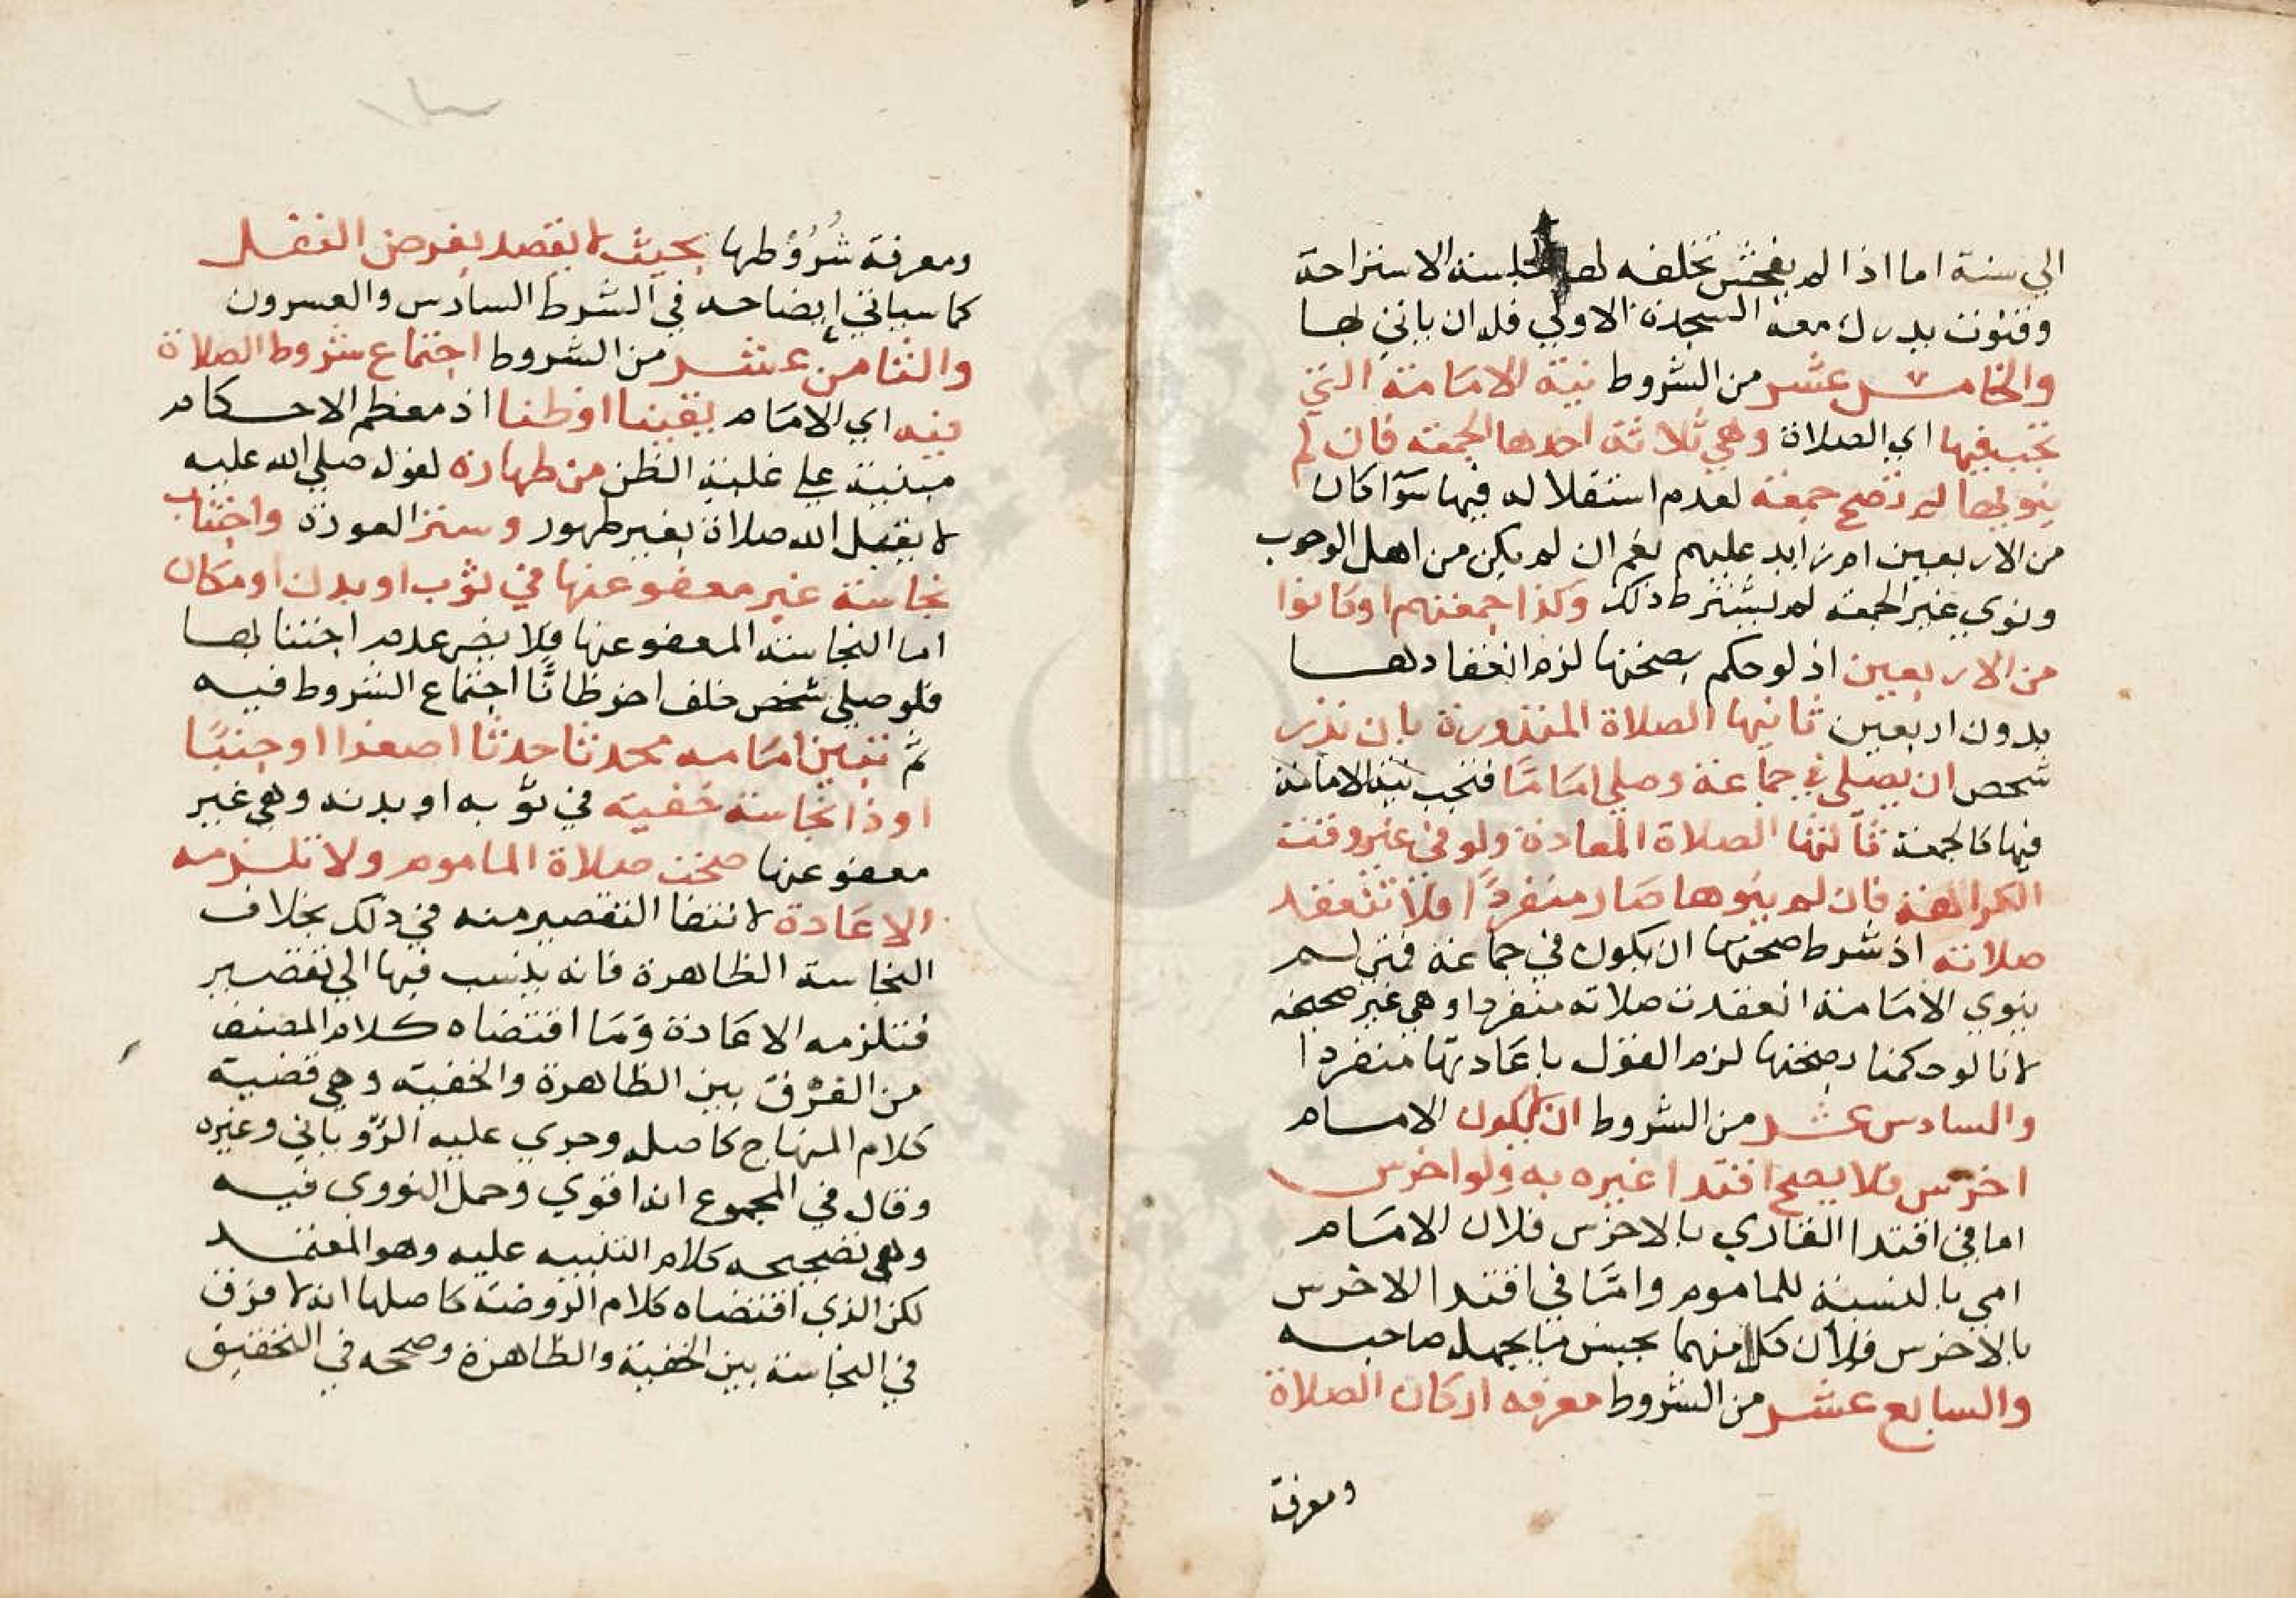 الي سنة اما اذا لم يفحش تخلفه لها كجلسة الاستراحة
وقنوت يدرك معه السجدة الاولي فله ان ياتي بها
والخامس عشر من الشروط نية الامامة التي
تجب فيها اي الصلاة وهي ثلاثة احدها الجمعة فان لم
ينو بها لم تصح جمعته لعدم استقلاله فيها سوا كان
من الاربعين ام زايد عليهم نعم ان لم يكن من اهل الوجوب
ونوي غير الجمعة لم يشترط ذلك وكذا جمعتهم اوكانوا
من الاربعين اذ لوحكم بصحتها لزم انعقادها
بدون اربعين ثانيها الصلاة المنذورة بان نذر
شخص ان يصلي في جماعة وصلي اماما فتجب نية الامامة
فيها كالجمعة ثالثها الصلاة المعادة ولو في غير وقت
الكراهة فان لم ينوها صار منفردا فلا تنعقد
صلاته اذ شرط صحتها ان يكون في جماعة فمتي لم
ينوي الامامة انعقدت صلاته منفردا وهي غير صحيحة
لانا لوحكمنا بصحتها لزم القول باعادتها منفردا
والسادس عشر من الشروط ان لايكون الامام
اخرس فلا يصح اقتدا غيره به ولو اخرس
اما في اقتدا القاري بالاخرس فلان الامام
امي بالنسبة للماموم واما في اقتدا الاخرس
بالاخرس فلان كلا منهما يحسن ما يجهله صاحبه
والسابع عشر من الشروط معرفة اركان الصلاة
ومعرفة
ومعرفة شروطها بحيث لا يقصد بفرض النفل
كما سياتي ايضاحه في الشرط السادس والعسرون
والثامن عشر من الشروط اجتماع شروط الصلاة
فيه اي الامام يقينا اوظنا اذ معظم الاحكام
مبنية علي غلبة الظن من طهارة لقوله صلي الله عليه
لا يقبل الله صلاة بغير طهور وستر العورة واجتناب
نجاسة غير معفو عنها في ثوب او بدن او مكان
اما النجاسة المعفو عنها فلا يضر عدم اجتنابها
فلو صلي شخص خلف اخر ظانا اجتماع الشروط فيه
ثم تبين امامه محدثا حدثا اصغرا اوجنبا
اوذا نجاسة خفية في ثوبه او بدنه وهي غير
معفو عنها صحت صلاة الماموم ولا تلزمه
الاعادة لانتفا التقصير منه في ذلك بخلاف
النجاسة الظاهرة فانه ينسب فيها الي تقصير
فتلزمه الاعادة وما اقتضاه كلام المصنف
من الفرق بين الظاهرة والخفية وهي قضية
كلام المنهاج كاصله وجري عليه الروياني وغيره
وقال في المجموع انه اقوي وحمل النووي فيه
وفي تصحيحه كلام التنبيه عليه وهو المعتمد
لكن الذي اقتضاه كلام الروضة كاصلها انه لا فرق
في النجاسة بين الخفية والظاهرة وصححه في التحقيق